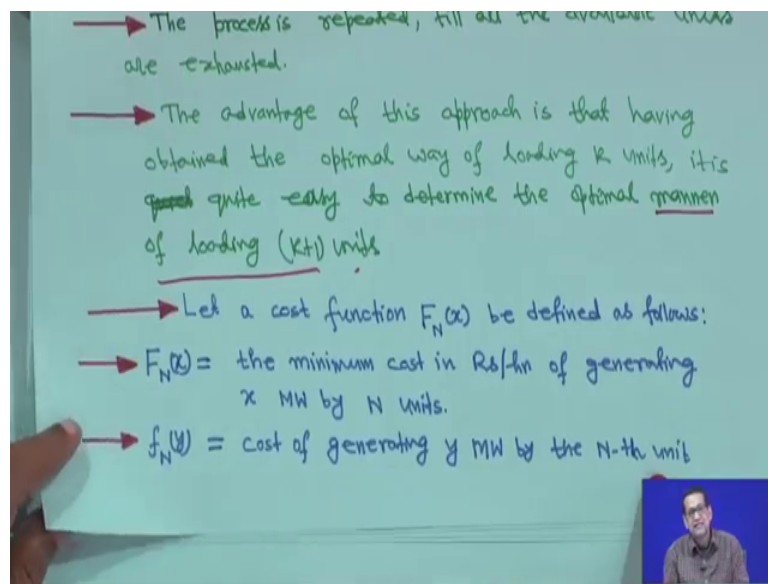 The process is repeated, till all the available units
are exhausted.
The advantage of this approach is that having
obtained the optimal way of loading K units, it is
quite easy to determine the optimal manner
of loading (K+1) units.
Let a cost function F_N(x) be defined as follows:
F_N(x) = the minimum cost in Rs/hr of generating
x MW by N units.
f_N(y) = cost of generating y MW by the N-th unit